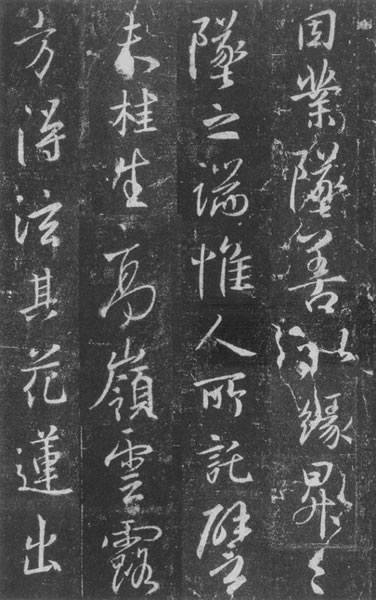 因業墜善以緣昇〻
墜之端惟人所託譬
夫桂生高嶺雲露
方得泫其花蓮出